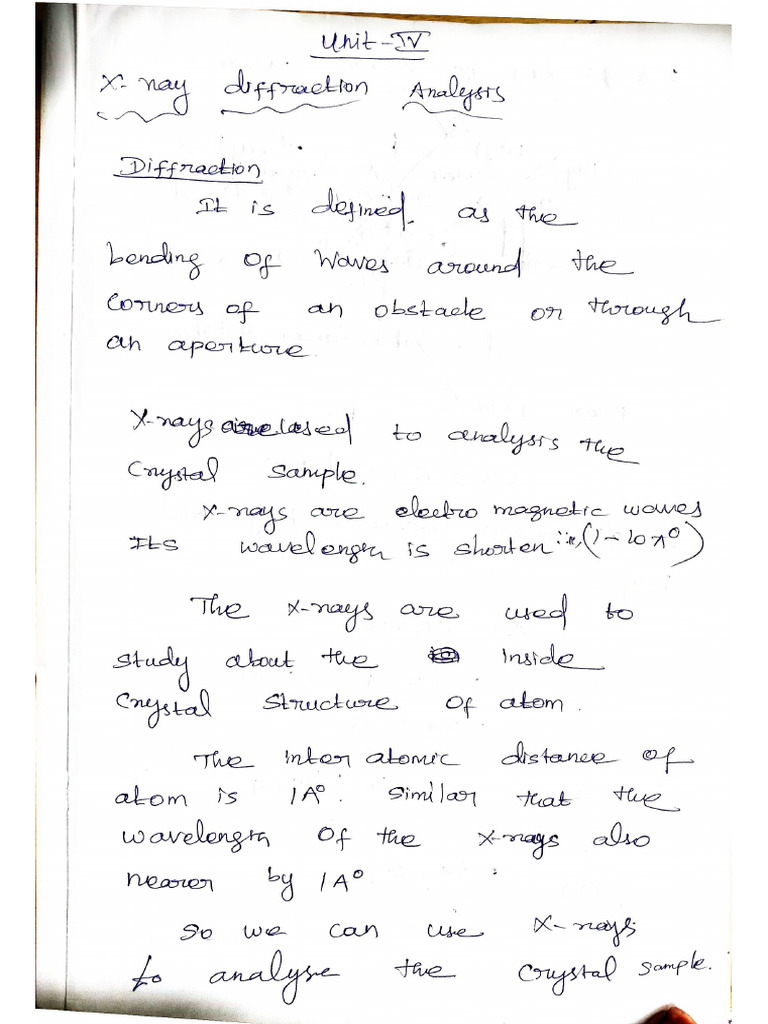 Unit-IV
X-ray diffraction Analysis
Diffraction
It is defined. as the
bending of waves around the
corners of an obstacle or through
an aperture.
X-rays are used to analysis the
Crystal sample.
X-rays are electro magnetic waves
Its wavelength is shorten i.e, (1-10 A°)
The X-rays are used to
study about the inside
crystal structure of atom.
The inter atomic distance of
atom is 1A°. Similar that the
wavelength of the X-rays also
nearer by 1A°
So we can use X-rays
to analyse the crystal sample.